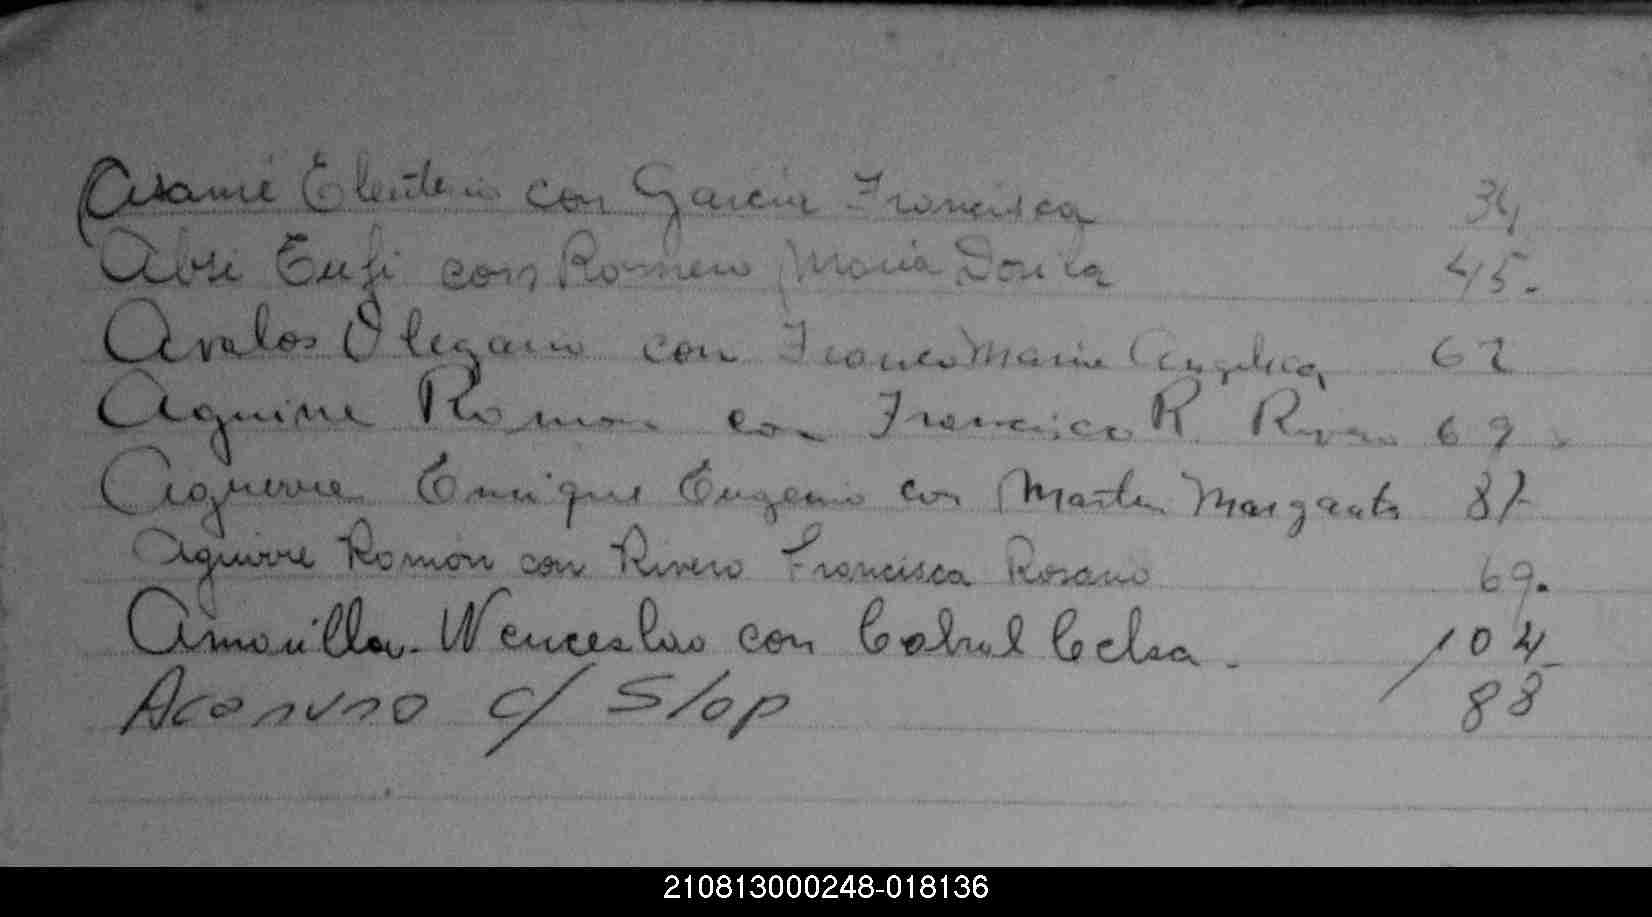 Asamé Eleuterio con Garcia Francisca 34
Absi Eufi con Romero Maria Dorila 45.
Avalos Olegario con Franco Maria Angelica 62
Aguirre Ramon con Francisca R. Rivero 69
Aguerre Enrique Eugenio con Martin Margarita 87
Aguirre Ramón con Rivero Francisca Rosario 69.
Amarilla - Wenceslao con Cabral Celsa . 104
c/ Slop 88
210813000248-018136